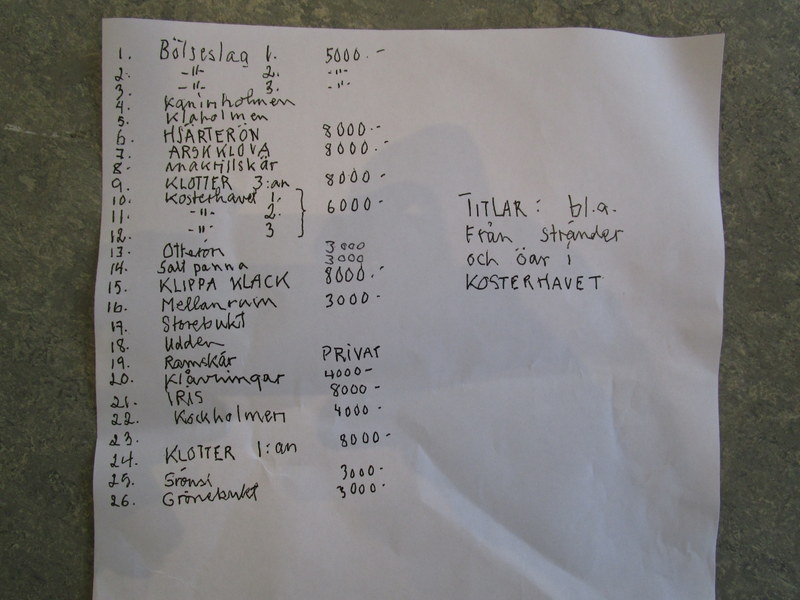 1. Bölseslag 1. 5000.-
2. -"- 2. -"-
3. -"- 3. -"-
4. Kaninholmen
5. Klåholmen
6. HJÄRTERÖN 8000.-
7. ARSKKLOVA 8000.-
8. Makrillskär
9. KLOTTER 3:an 8000-
10. Kosterhavet 1. 6000-
11. -"- 2.
12. -"- 3
13. Otterön 3000
14. Saltpanna 3000
15. KLIPPA KLACK 8000.-
16. Mellanrum 3000-
17. Storebukt
18. Udden
19. Ramskär PRIVAT
20. Klåvningar 4000-
21. IRIS 8000-
22. Kockholmen 4000-
23.
24. KLOTTER 1:an 8000-
25. 3000-
26. Grönebukt 3000-
TITLAR: bl.a.
Från stränder
och öar i
KOSTERHAVET